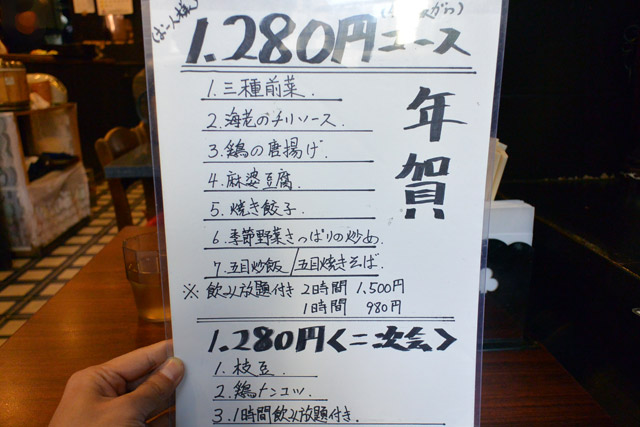 (お一人様)
1.280円コース
年賀
1.三種前菜.
2.海老のチリソース.
3.鶏の唐揚げ.
4.麻婆豆腐.
5.焼き餃子.
6.季節野菜さっぱりの炒め.
7.五目炒飯/五目焼きそば.
※飲み放題付き 2時間 1,500円
1時間 980円
1.280円<二次会>
1.枝豆.
2.鶏ナンコツ.
3.1時間飲み放題付き.